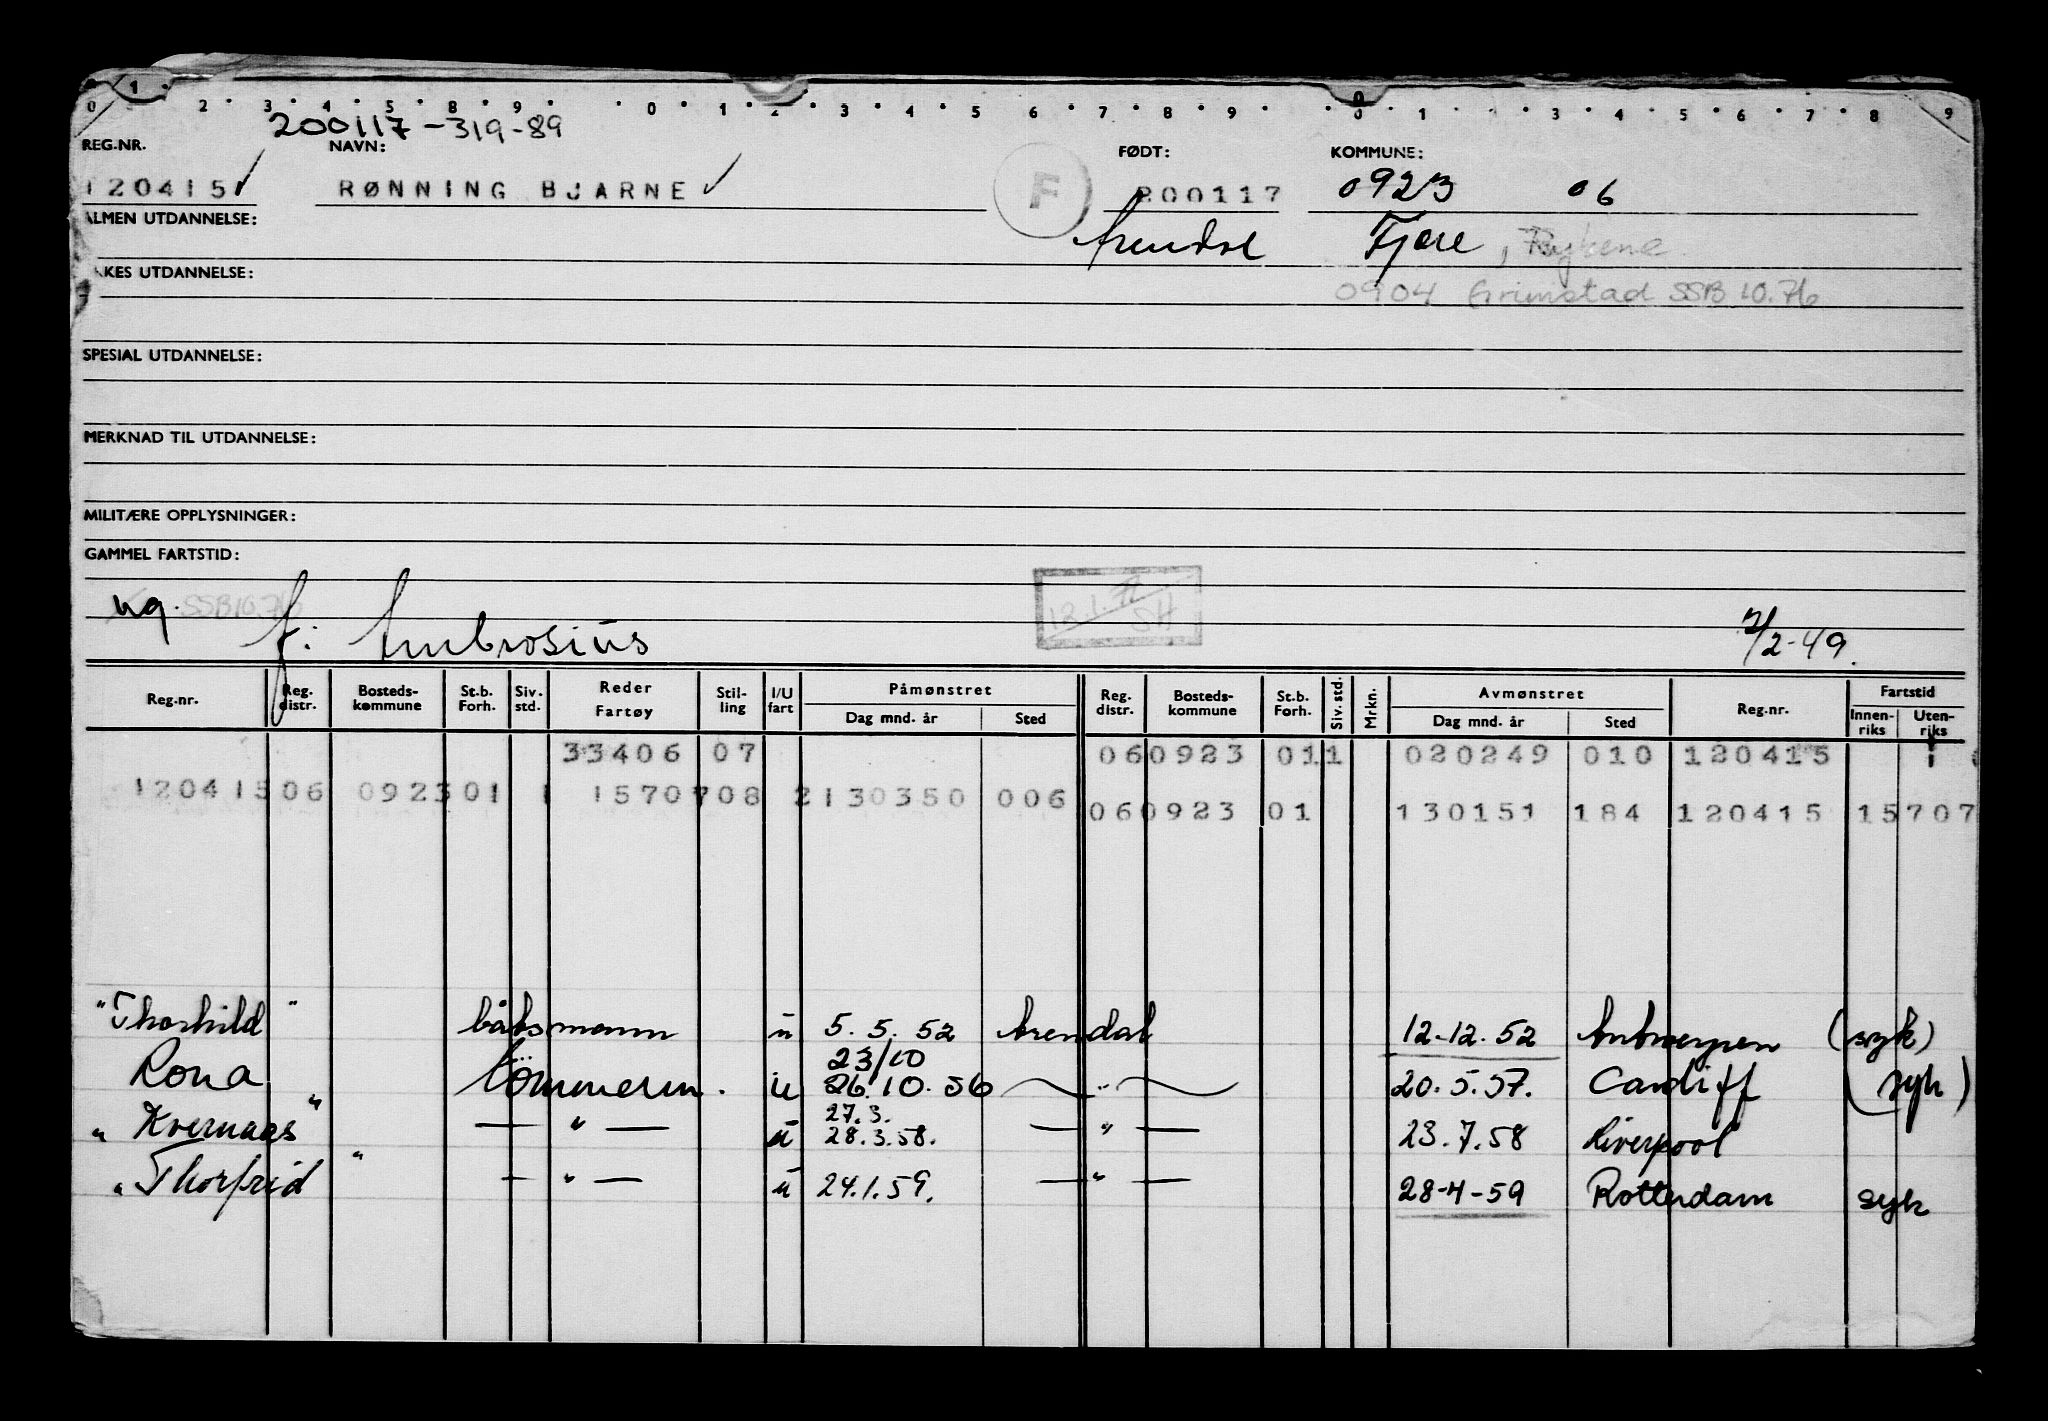 0 1 2 3 4 5 8 9 0 1 2 3 4 5 6 7 8 9 0 1 3 4 5 6 7 8 9
200117-319-89
REG.NR. NAVN: FØDT: KOMMUNE:
120415 ✓ RØNNING BJARNE ✓ F 200117 0923 06
ALMEN UTDANNELSE: Arendal Fjære,
YRKES UTDANNELSE:
0904 Grimstad SSB 10.76
SPESIAL UTDANNELSE:
MERKNAD TIL UTDANNELSE:
MILITÆRE OPPLYSNINGER:
GAMMEL FARTSTID:
ug. SSB 10.76 12.1.77 SH
f: Ambrosius 2/2-49.
Reg.nr. Reg. distr. Bosteds-kommune St.b. Forh. Siv. std. Reder Fartøy Stil-ling I/U fart Påmønstret Dag mnd. år Sted Reg. distr. Bosteds-kommune St.b. Forh. Siv. std. Mrkn. Avmønstret Dag mnd. år Sted Reg.nr. Fartstid Innen-riks Uten-riks
33406 07 060923 011 020249 010 120415 1
120415 06 0923 01 1 15707 08 2 130350 006 060923 01 130151 184 120415 15707
"Thorhild" båtsmann u 5.5.52 Arendal 12-12.52 Antwerpen (syk)
23/10
Rona tömmerm. u 26.10.56 — " — 20.5.57. Cardiff (syk)
27.3.
"Kvernaas" — " — u 28.3.58. — " — 23.7.58 Liverpool
"Thorfrid" — " — u 24.1.59. — " — 28-4-59 Rotterdam syk